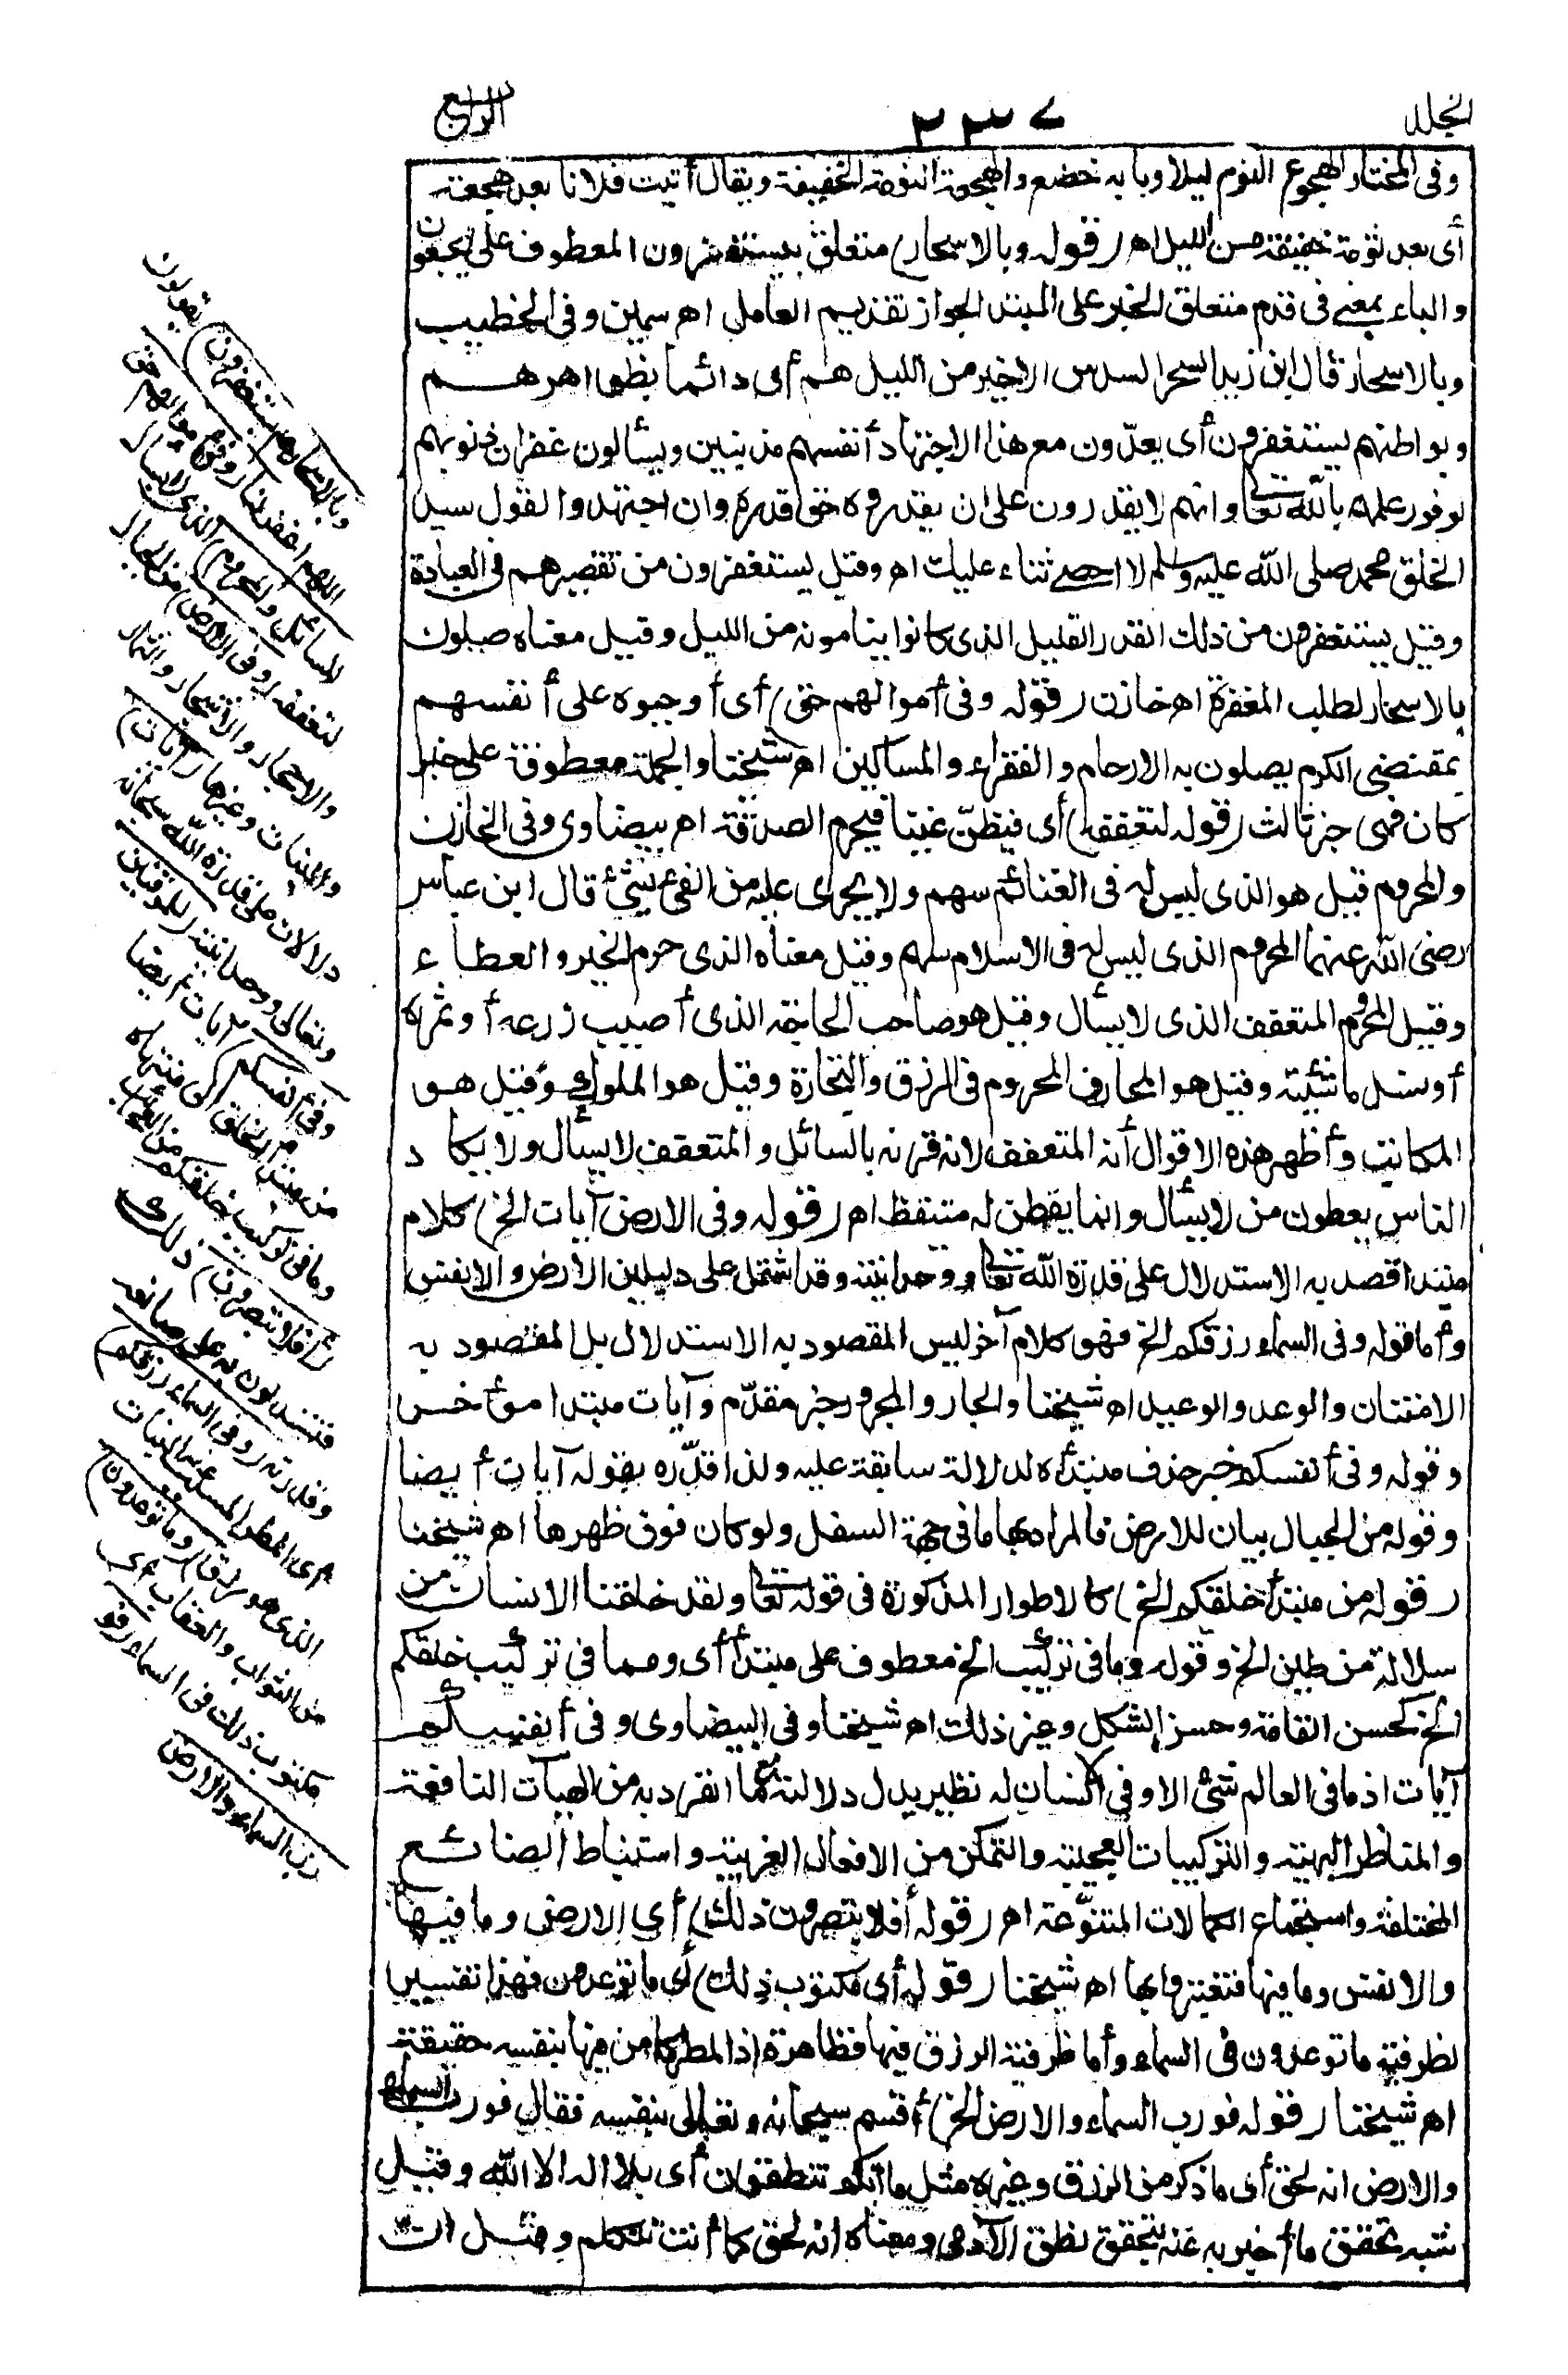 المجلد ٢٣٧ الرابع
وفى المختار الهجوع النوم ليلا وبابه خضع والهجعة النومة الخفيفة ويقال أتيت فلانا بعد هجعة
أى بعد نومة خفيفة من الليل اھ (قوله وبالاسحار) متعلق بيستغفرون المعطوف على يهجعون
والباء بمعنى فى قدم متعلق الخبر على المبتدا لجواز تقديم العامل اھ سمين وفى الخطيب
وبالاسحار قال ابن زيد السحر السدس الاخير من الليل هم أى دائما بظواهرهم
وبواطنهم يستغفرون أى يعدّون مع هذا الاجتهاد أنفسهم مذنبين ويسألون غفران ذنوبهم
لوفور علمهم بالله تعالى وانهم لا يقدرون على ان يقدروه حق قدره وان اجتهدوا لقول سيد
الخلق محمد صلى الله عليه وسلم لا احصى ثناء عليك اھ وقيل يستغفرون من تقصيرهم فى العبادة
وقيل يستغفرون من ذلك القدر القليل الذى كانوا ينامونه من الليل وقيل معناه صلون
بالاسحار لطلب المغفرة اھ خازن (قوله وفى أموالهم حق) أى أوجبوه على أنفسهم
بمقتضى الكرم يصلون به الارحام والفقراء والمساكين اھ شيخنا والجملة معطوفة على خبر
كان فهى خبر ثالث (قوله لتعففه) أى فيظنّ غنيا فيحرم الصدقة اھ بيضاوى وفى الخازن
والمحروم قيل هو الذى ليس له فى الغنائم سهم ولا يجرى عليه من الفىء شىء قال ابن عباس
رضى الله عنهما المحروم الذى ليس له فى الاسلام سهم وقيل معناه الذى حرم الخير والعطاء
وقيل المحروم المتعفف الذى لا يسأل وقيل هو صاحب الجائحة الذى أصيب زرعه أو ثمره
أو نسل ماشيته وقيل هو المحارف المحروم فى الرزق والتجارة وقيل هو المملوك وقيل هو
المكاتب وأظهر هذه الاقوال أنه المتعفف لانه قرنه بالسائل والمتعفف لا يسأل ولا يكاد
الناس يعطون من لا يسأل وانما يفطن له متيقظ اھ (قوله وفى الارض آيات الخ) كلام
مبتدا قصد به الاستدلال على قدرة الله تعالى ووحدانيته وقد اشتمل على دليلين الارض والانفس
وأما قوله وفى السماء رزقكم الخ فهو كلام آخر ليس المقصود به الاستدلال بل المقصود به
الامتنان والوعد والوعيد اھ شيخنا والجار والمجرور خبر مقدّم وآيات مبتدا مؤخر
وقوله وفى أنفسكم خبر حذف مبتدأه لدلالة سابقة عليه ولذا قدّره بقوله آيات أيضا
وقوله من الجبال بيان للارض فالمراد بها ما فى جهة السفل ولو كان فوق ظهرها اھ شيخنا
(قوله من مبتدأ خلقكم الخ) كالاطوار المذكورة فى قوله تعالى ولقد خلقنا الانسان من
سلالة من طين الخ وقوله وما فى تركيب الخ معطوف على مبتدأ أى ومما فى تركيب خلقكم
الخ كحسن القامة وحسن الشكل وغير ذلك اھ شيخنا وفى البيضاوى وفى أنفسكم
آيات اذ ما فى العالم شىء الا وفى الانسان له نظير يدل دلالته مع ما انفرد به من الهيآت النافعة
والمناظر البهية والتركيبات العجيبة والتمكن من الافعال الغريبة واستنباط الصنائع
المختلفة واستجماع الكمالات المتنوّعة اھ (قوله أفلا تبصرون ذلك) أى الارض وما فيها
والانفس وما فيها فتعتبروا بها اھ شيخنا (قوله أى مكتوب ذلك) أى ما توعدون فهذا تفسير
لظرفية ما توعدون فى السماء وأما ظرفية الرزق فيها فظاهرة اذ المطر كامن فيها بنفسه حقيقة
اھ شيخنا (قوله فورب السماء والارض الخ) أقسم سبحانه وتعالى بنفسه فقال فورب السماء
والارض انه لحق أى ما ذكر من الرزق وغيره مثل ما أنكم تنطقون أى بلا اله الا الله وقيل
شبه تحقق ما أخبر به عنه بتحقق نطق الآدمى ومعناه انه لحق كما أنت تتكلم وقيل ان
(وبالاسحار هم يستغفرون) يقولون
اللهم اغفر لنا (وفى أموالهم حق
للسائل والمحروم) الذى لا يسأل
لتعففه (وفى الارض) من الجبال
والاحجار والاشجار والثمار
والنبات وغيرها (آيات)
دلالات على قدرة الله سبحانه
وتعالى ووحدانيته (للموقنين
وفى أنفسكم) آيات أيضا
من مبتدأ خلقكم الى منتهاه
وما فى تركيب خلقكم من العجائب
(أفلا تبصرون) ذلك
فتستدلون به على صانعه
وقدرته (وفى السماء رزقكم)
أى المطر المسبب عنه النبات
الذى هو رزق (وما توعدون)
من الثواب والعقاب أى
مكتوب ذلك فى السماء (فو
رب السماء والارض